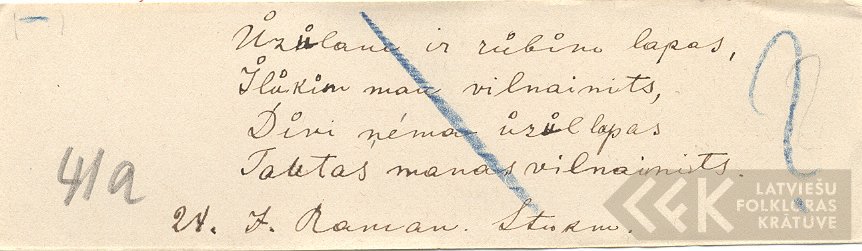 Ůzůlam ir růbino lapas,
Ĩlůkim man vilnainits,
Důvi ņéma ůzůl lapas
Tautas manas vilnainits.
41a
24. J. Raman. Stukm.
LATVIEŠU
FOLKLORAS
KRĀTUVE